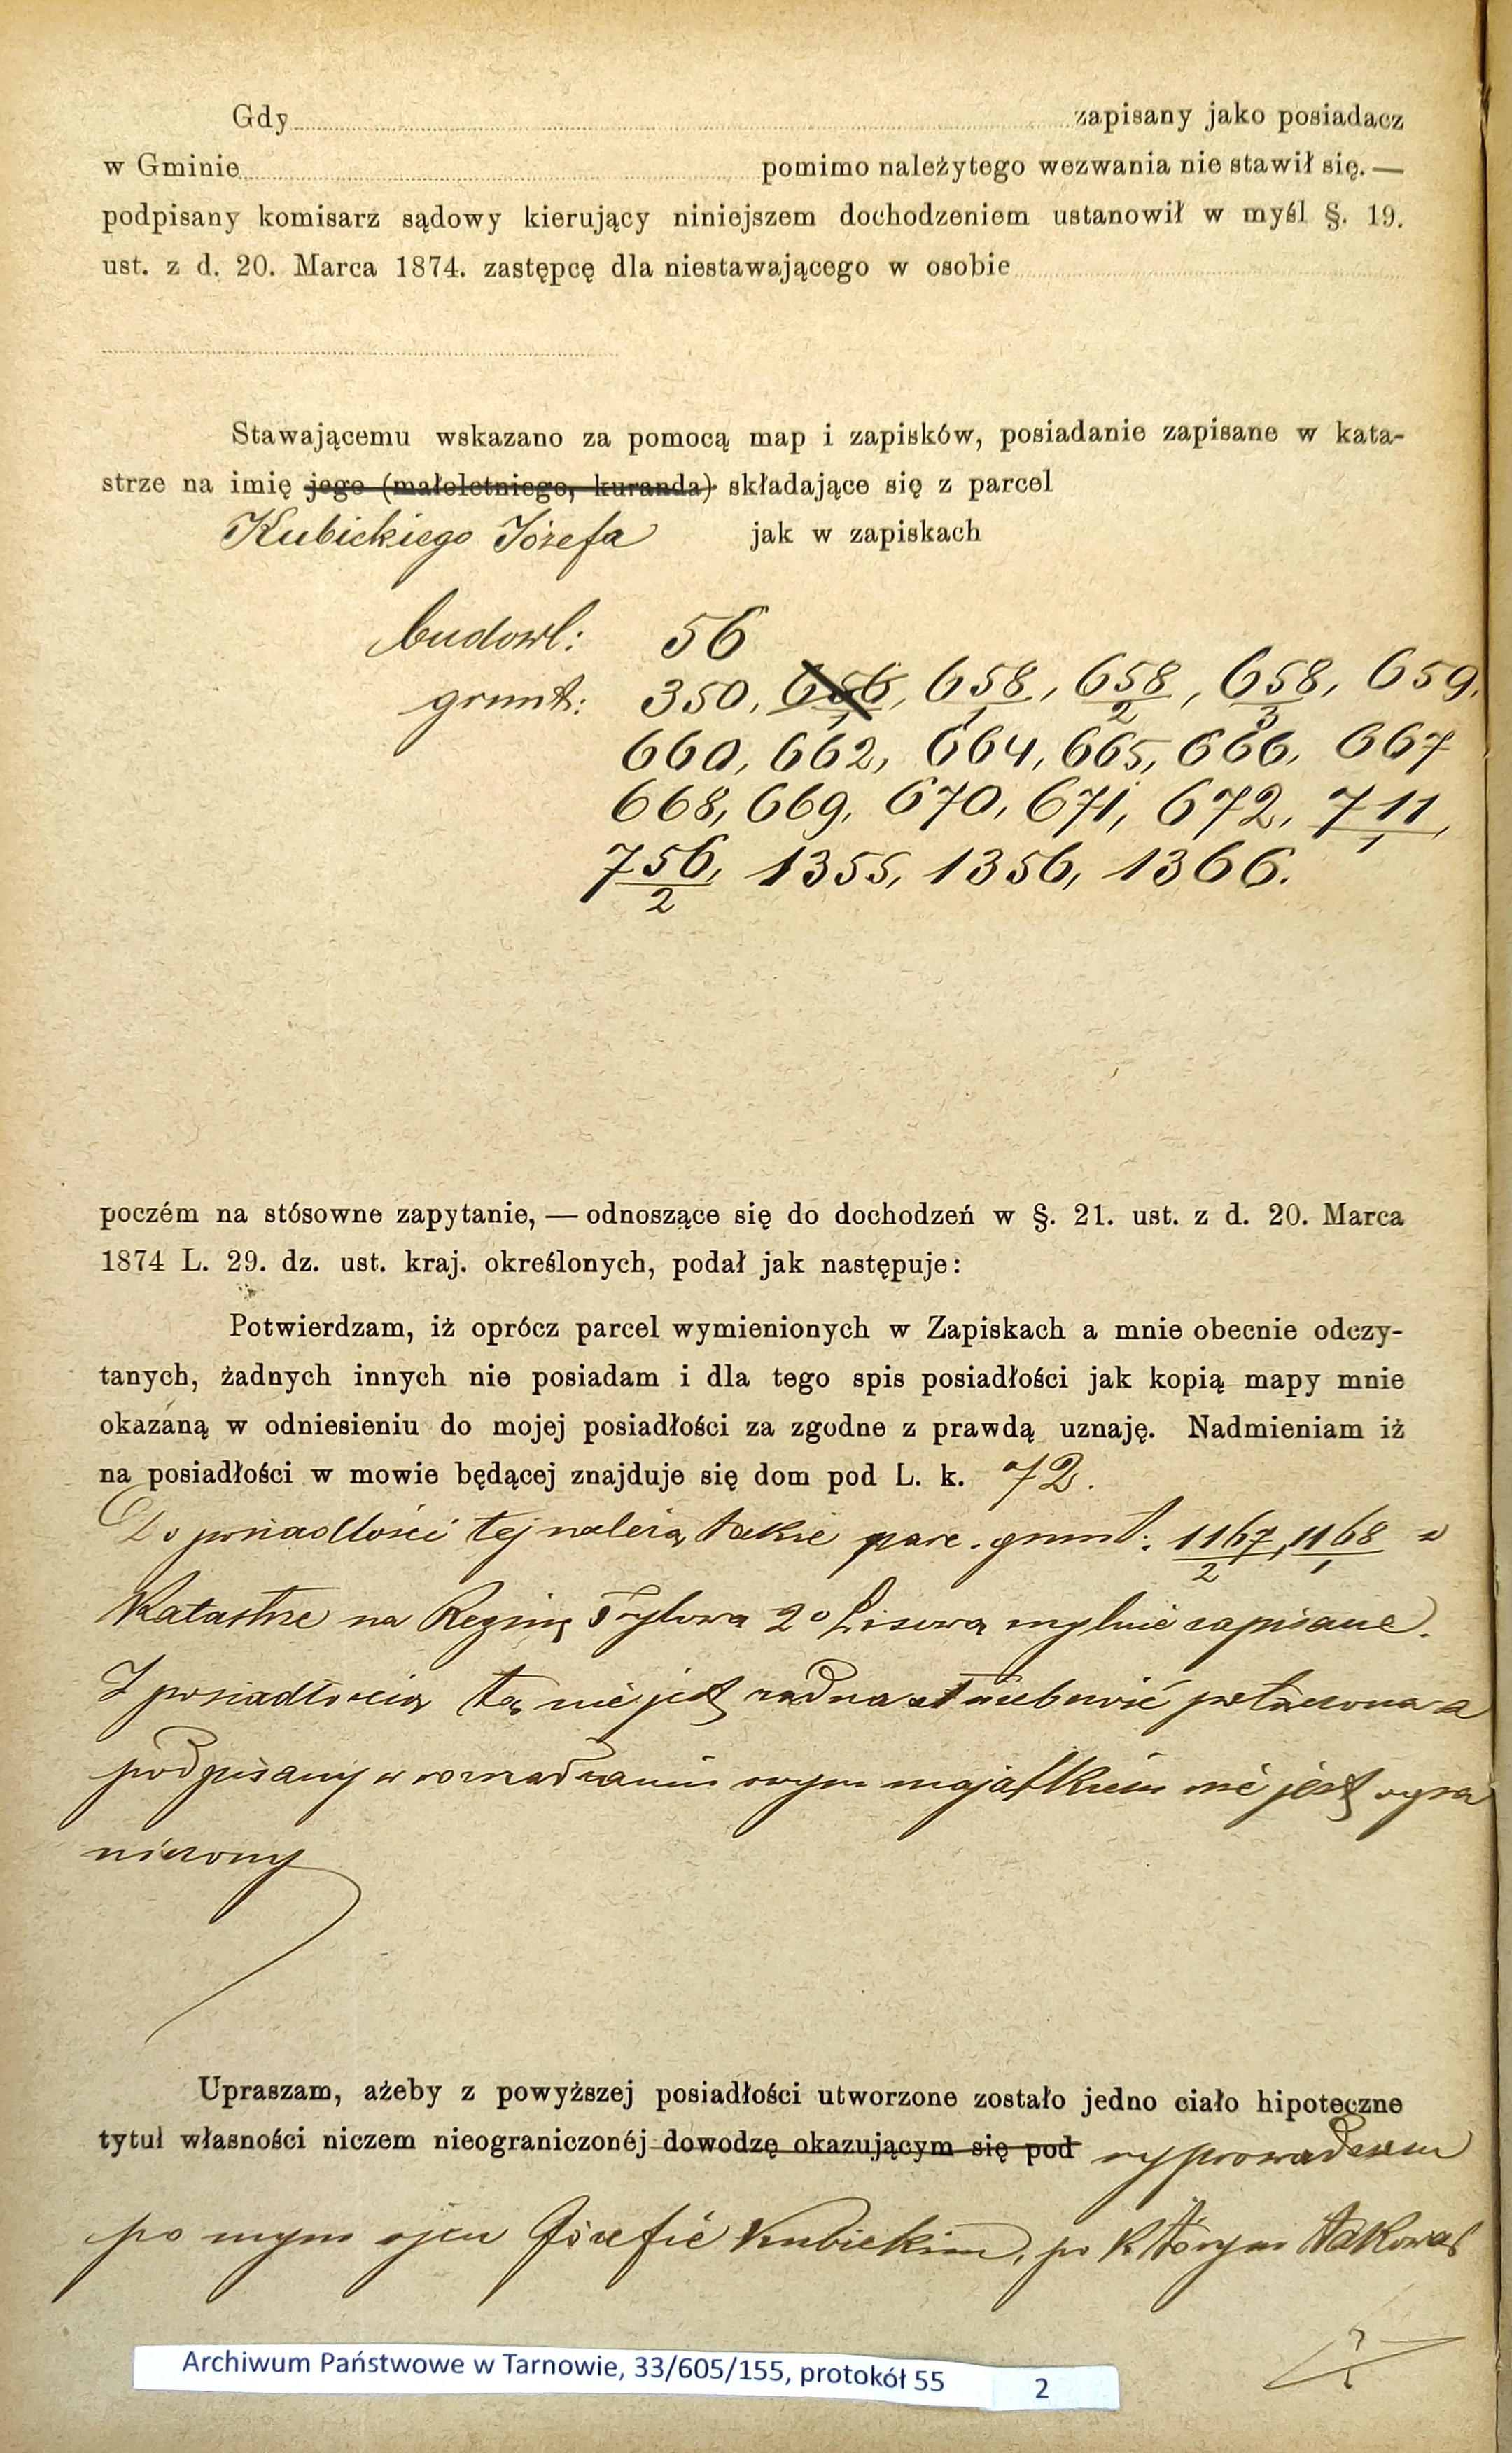 Gdy zapisany jako posiadacz
w Gminie pomimo należytego wezwania nie stawił się. —
podpisany komisarz sądowy kierujący niniejszem dochodzeniem ustanowił w myśl §. 19.
ust. z d. 20. Marca 1874. zastępcę dla niestawającego w osobie
Stawającemu wskazano za pomocą map i zapisków, posiadanie zapisane w kata-
strze na imię jego (małoletniego, kuranda) składające się z parcel
Kubickiego Józefa jak w zapiskach
budowl: 56
grunt: 350, 656/1, 658/1, 658/2, 658/3, 659,
660, 662, 664, 665, 666, 667
668, 669, 670, 671, 672, 711/1,
756/2, 1355, 1356, 1366.
poczém na stósowne zapytanie, — odnoszące się do dochodzeń w §. 21. ust. z d. 20. Marca
1874 L. 29. dz. ust. kraj. określonych, podał jak następuje:
Potwierdzam, iż oprócz parcel wymienionych w Zapiskach a mnie obecnie odczy-
tanych, żadnych innych nie posiadam i dla tego spis posiadłości jak kopią mapy mnie
okazaną w odniesieniu do mojej posiadłości za zgodne z prawdą uznaję. Nadmieniam iż
na posiadłości w mowie będącej znajduje się dom pod L. k. 72.
Do posiadłości tej należą także parc. grunt: 1167/2, 1168/1 w
Katastrze na Reginę 2o Lisową mylnie zapisane.
Z posiadłością tą nie jest żadna służebność połączona a
podpisany w rozrządzaniu swym majątkiem nie jest ogra
niczony
Upraszam, ażeby z powyższej posiadłości utworzone zostało jedno ciało hipoteczne
tytuł własności niczem nieograniczonéj dowodzę okazującym się pod wyprowadzam
po mym ojcu Józefie Kubickim, po którym takową
Archiwum Państwowe w Tarnowie, 33/605/155, protokół 55 2